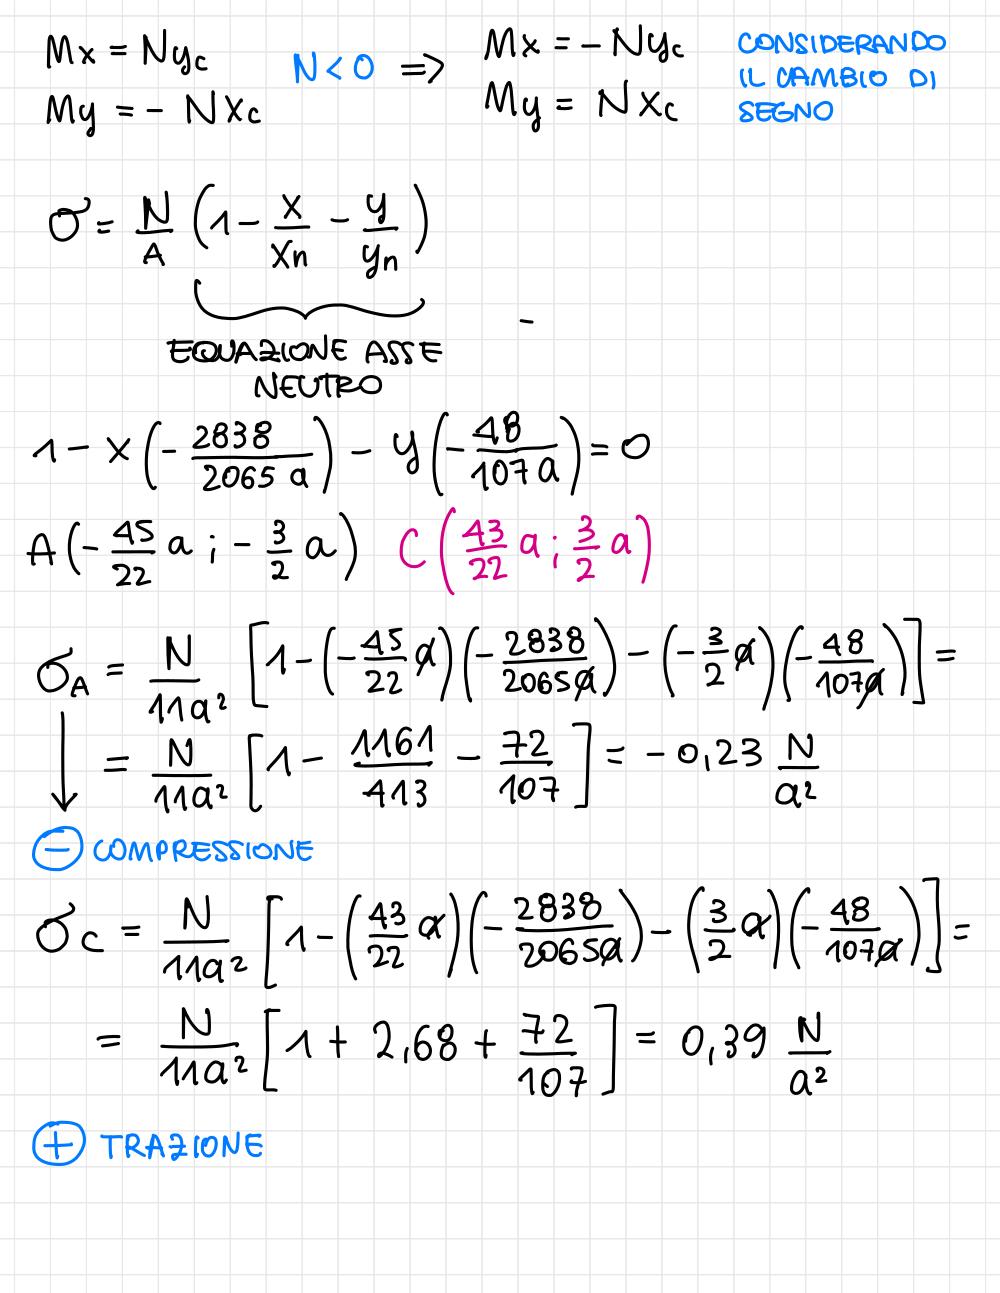 Mx = Nyc N<0 => Mx = - Nyc CONSIDERANDO
My = - Nxc My = Nxc IL CAMBIO DI
SEGNO
σ = N/A (1 - x/xn - y/yn)
-
EQUAZIONE ASSE
NEUTRO
1 - x (- 2838/2065 a) - y (- 48/107 a) = 0
A (- 45/22 a ; - 3/2 a) C (43/22 a ; 3/2 a)
σA = N/11a² [1 - (- 45/22 a)(- 2838/2065a) - (- 3/2 a)(- 48/107a)] =
= N/11a² [1 - 1161/413 - 72/107] = - 0,23 N/a²
- COMPRESSIONE
σc = N/11a² [1 - (43/22 a)(- 2838/2065a) - (3/2 a)(- 48/107a)] =
= N/11a² [1 + 2,68 + 72/107] = 0,39 N/a²
+ TRAZIONE